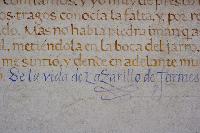 contíamos, y yo muy de prest
os tragos conocía la falta, y por re
do. Mas no había piedra imán q
al, metiéndola en la boca del jarro
me sintió, y dende en adelante mu
De la vida de Lazarillo de Tormes